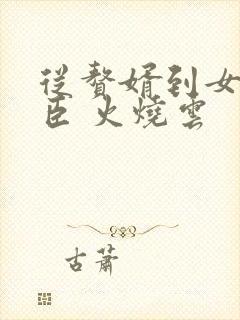 從贅婿到女
臣 火燒雲
古蕭